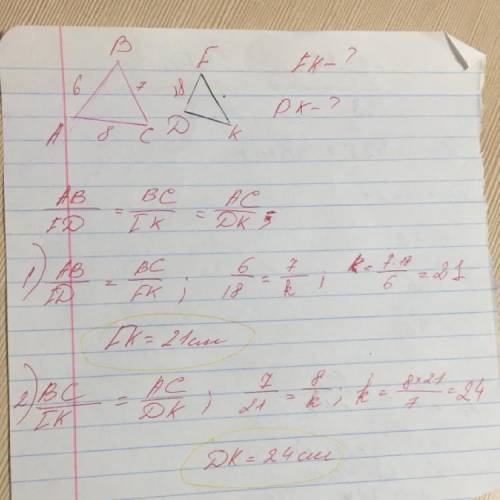 B E EK-?
6 7 18 DK-?
A 8 C D K
AB/ED = BC/EK = AC/DK;
1) AB/ED = BC/EK; 6/18 = 7/k; k = 7·18/6 = 21
EK = 21 см
2) BC/EK = AC/DK; 7/21 = 8/k; k = 8×21/7 = 24
DK = 24 см